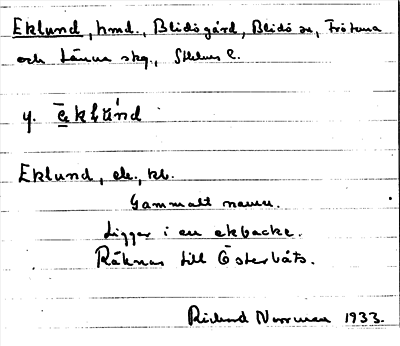 Eklund, hmd., Blidögård, Blidö sn, Frötuna
och Länna skg., Sthlms l.
y. ēklúnd
Eklund, ek., kb.
Gammalt namn.
Ligger i en ekbacke.
Räknas till Österlåts.
Rickard Norrman 1933.